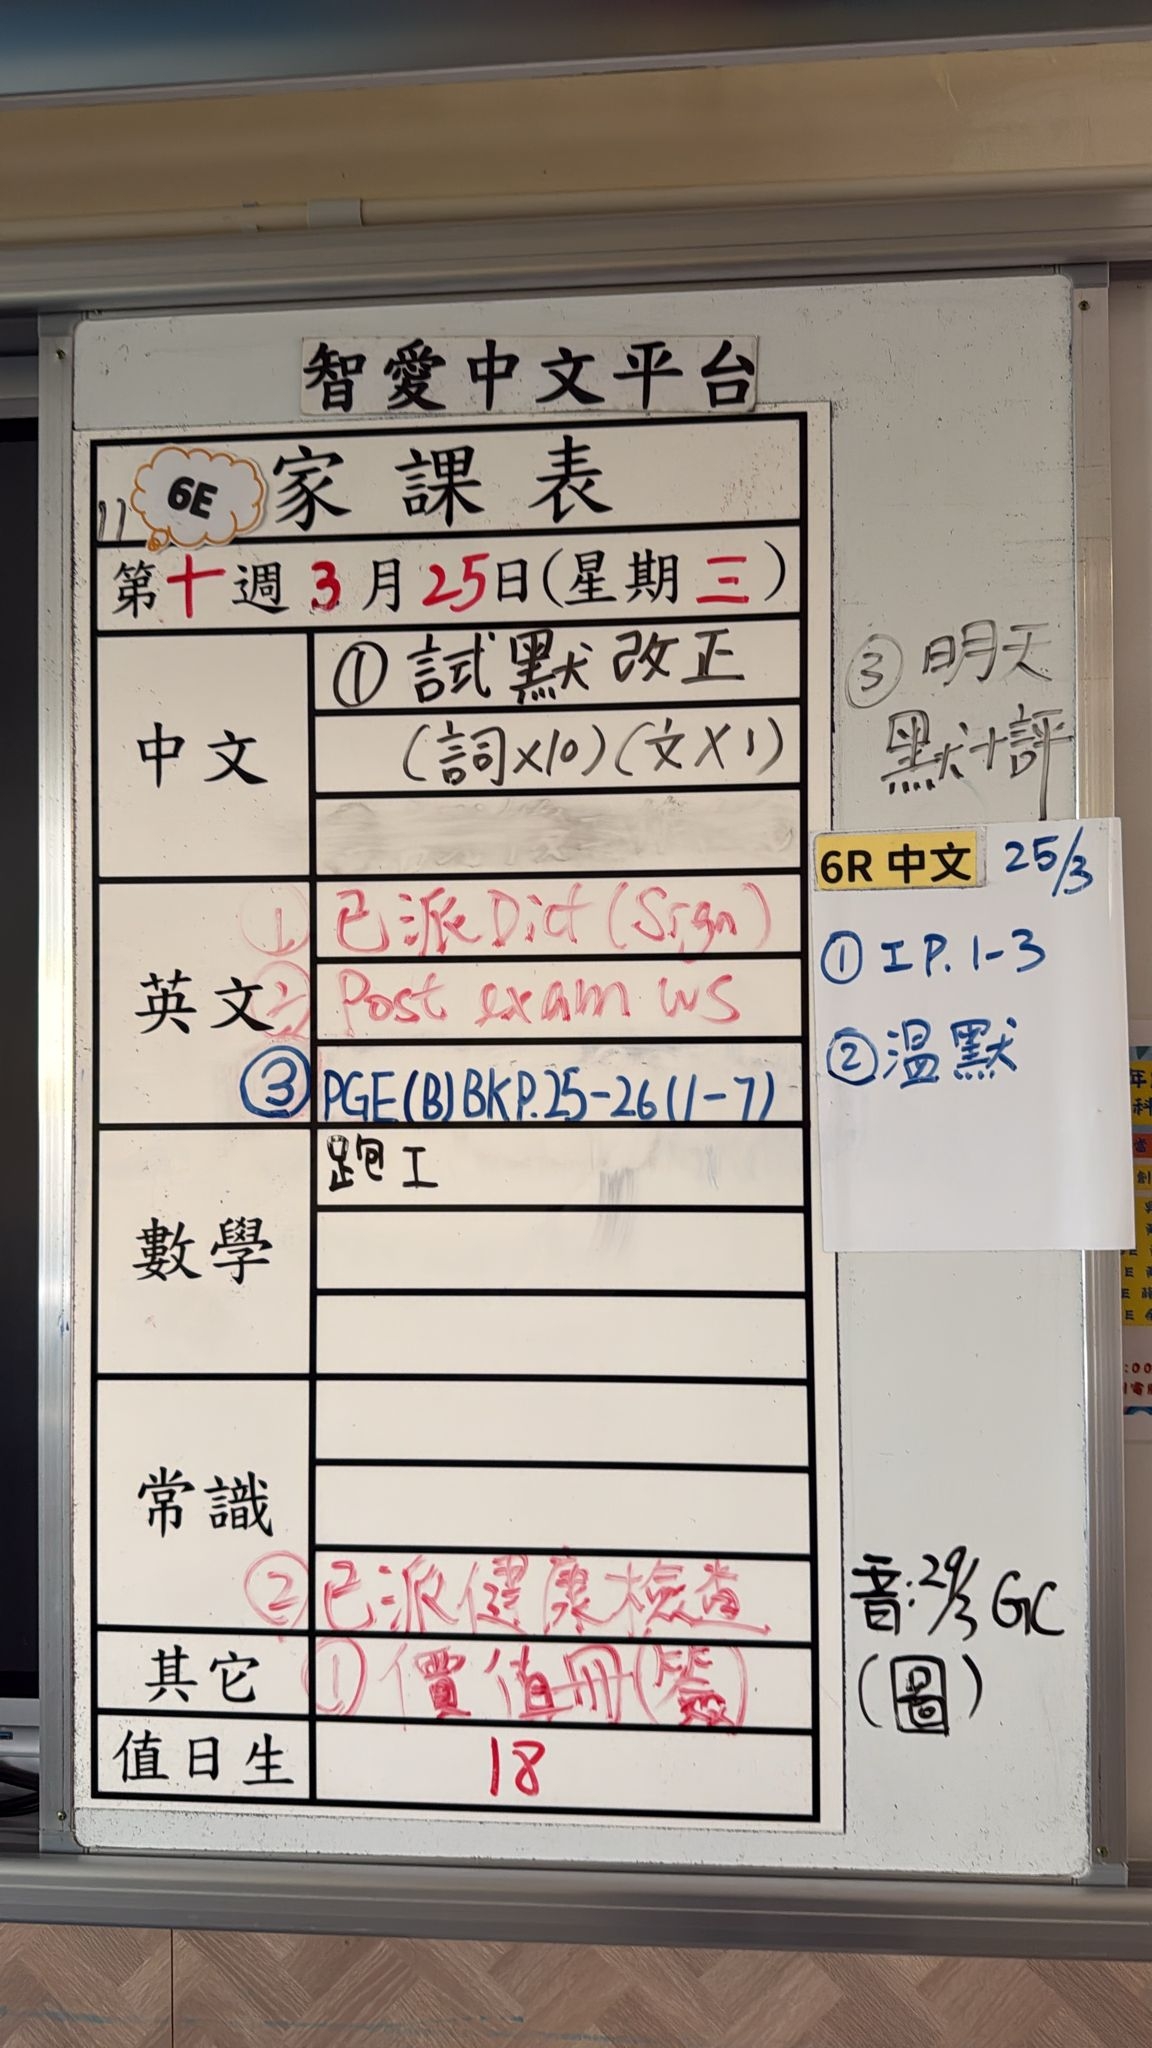 智愛中文平台
6E
家課表
第十週 3月25日(星期三)
中文
① 試默改正
(詞×10)(文×1)
③ 明天
默+評
英文
① 已派Dict (Sign)
② Post exam WS
③ PGE(B)BKP.25-26(1-7)
6R 中文 25/3
① 工P.1-3
② 溫默
數學
跑工
常識
② 已派健康檢查
其它
① 價值冊(簽)
值日生
18
音:29/3 GC
(圖)